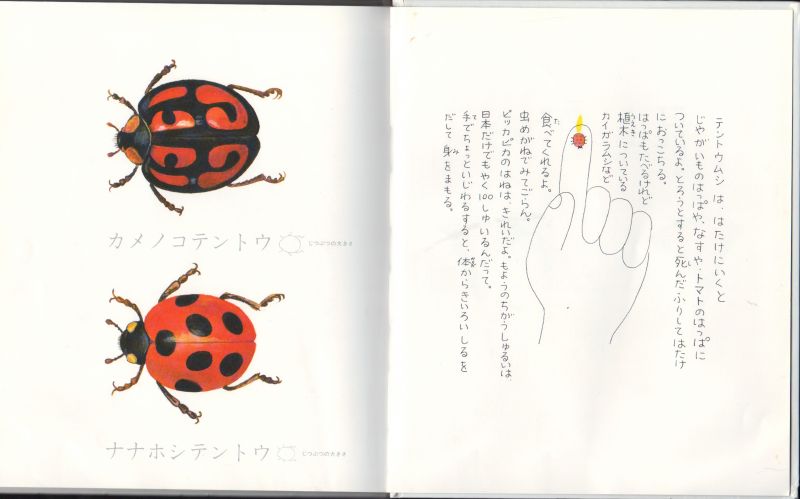 カメノコテントウ
じつぶつの大きさ
ナナホシテントウ
じつぶつの大きさ
テントウムシ は、はたけにいくと
じゃがいものはっぱや、なすや、トマトのはっぱに
ついているよ。とろうとすると死んだふりしてはたけ
におっこちる。
はっぱもたべるけれど
植木についている
カイガラムシなど
食べてくれるよ。
虫めがねでみてごらん。
ピッカピカのはねは、きれいだよ。もようのちがうしゅるいは、
日本だけでもやく100しゅいるんだって。
手でちょっといじわるすると、体からきいろいしるを
だして身をまもる。